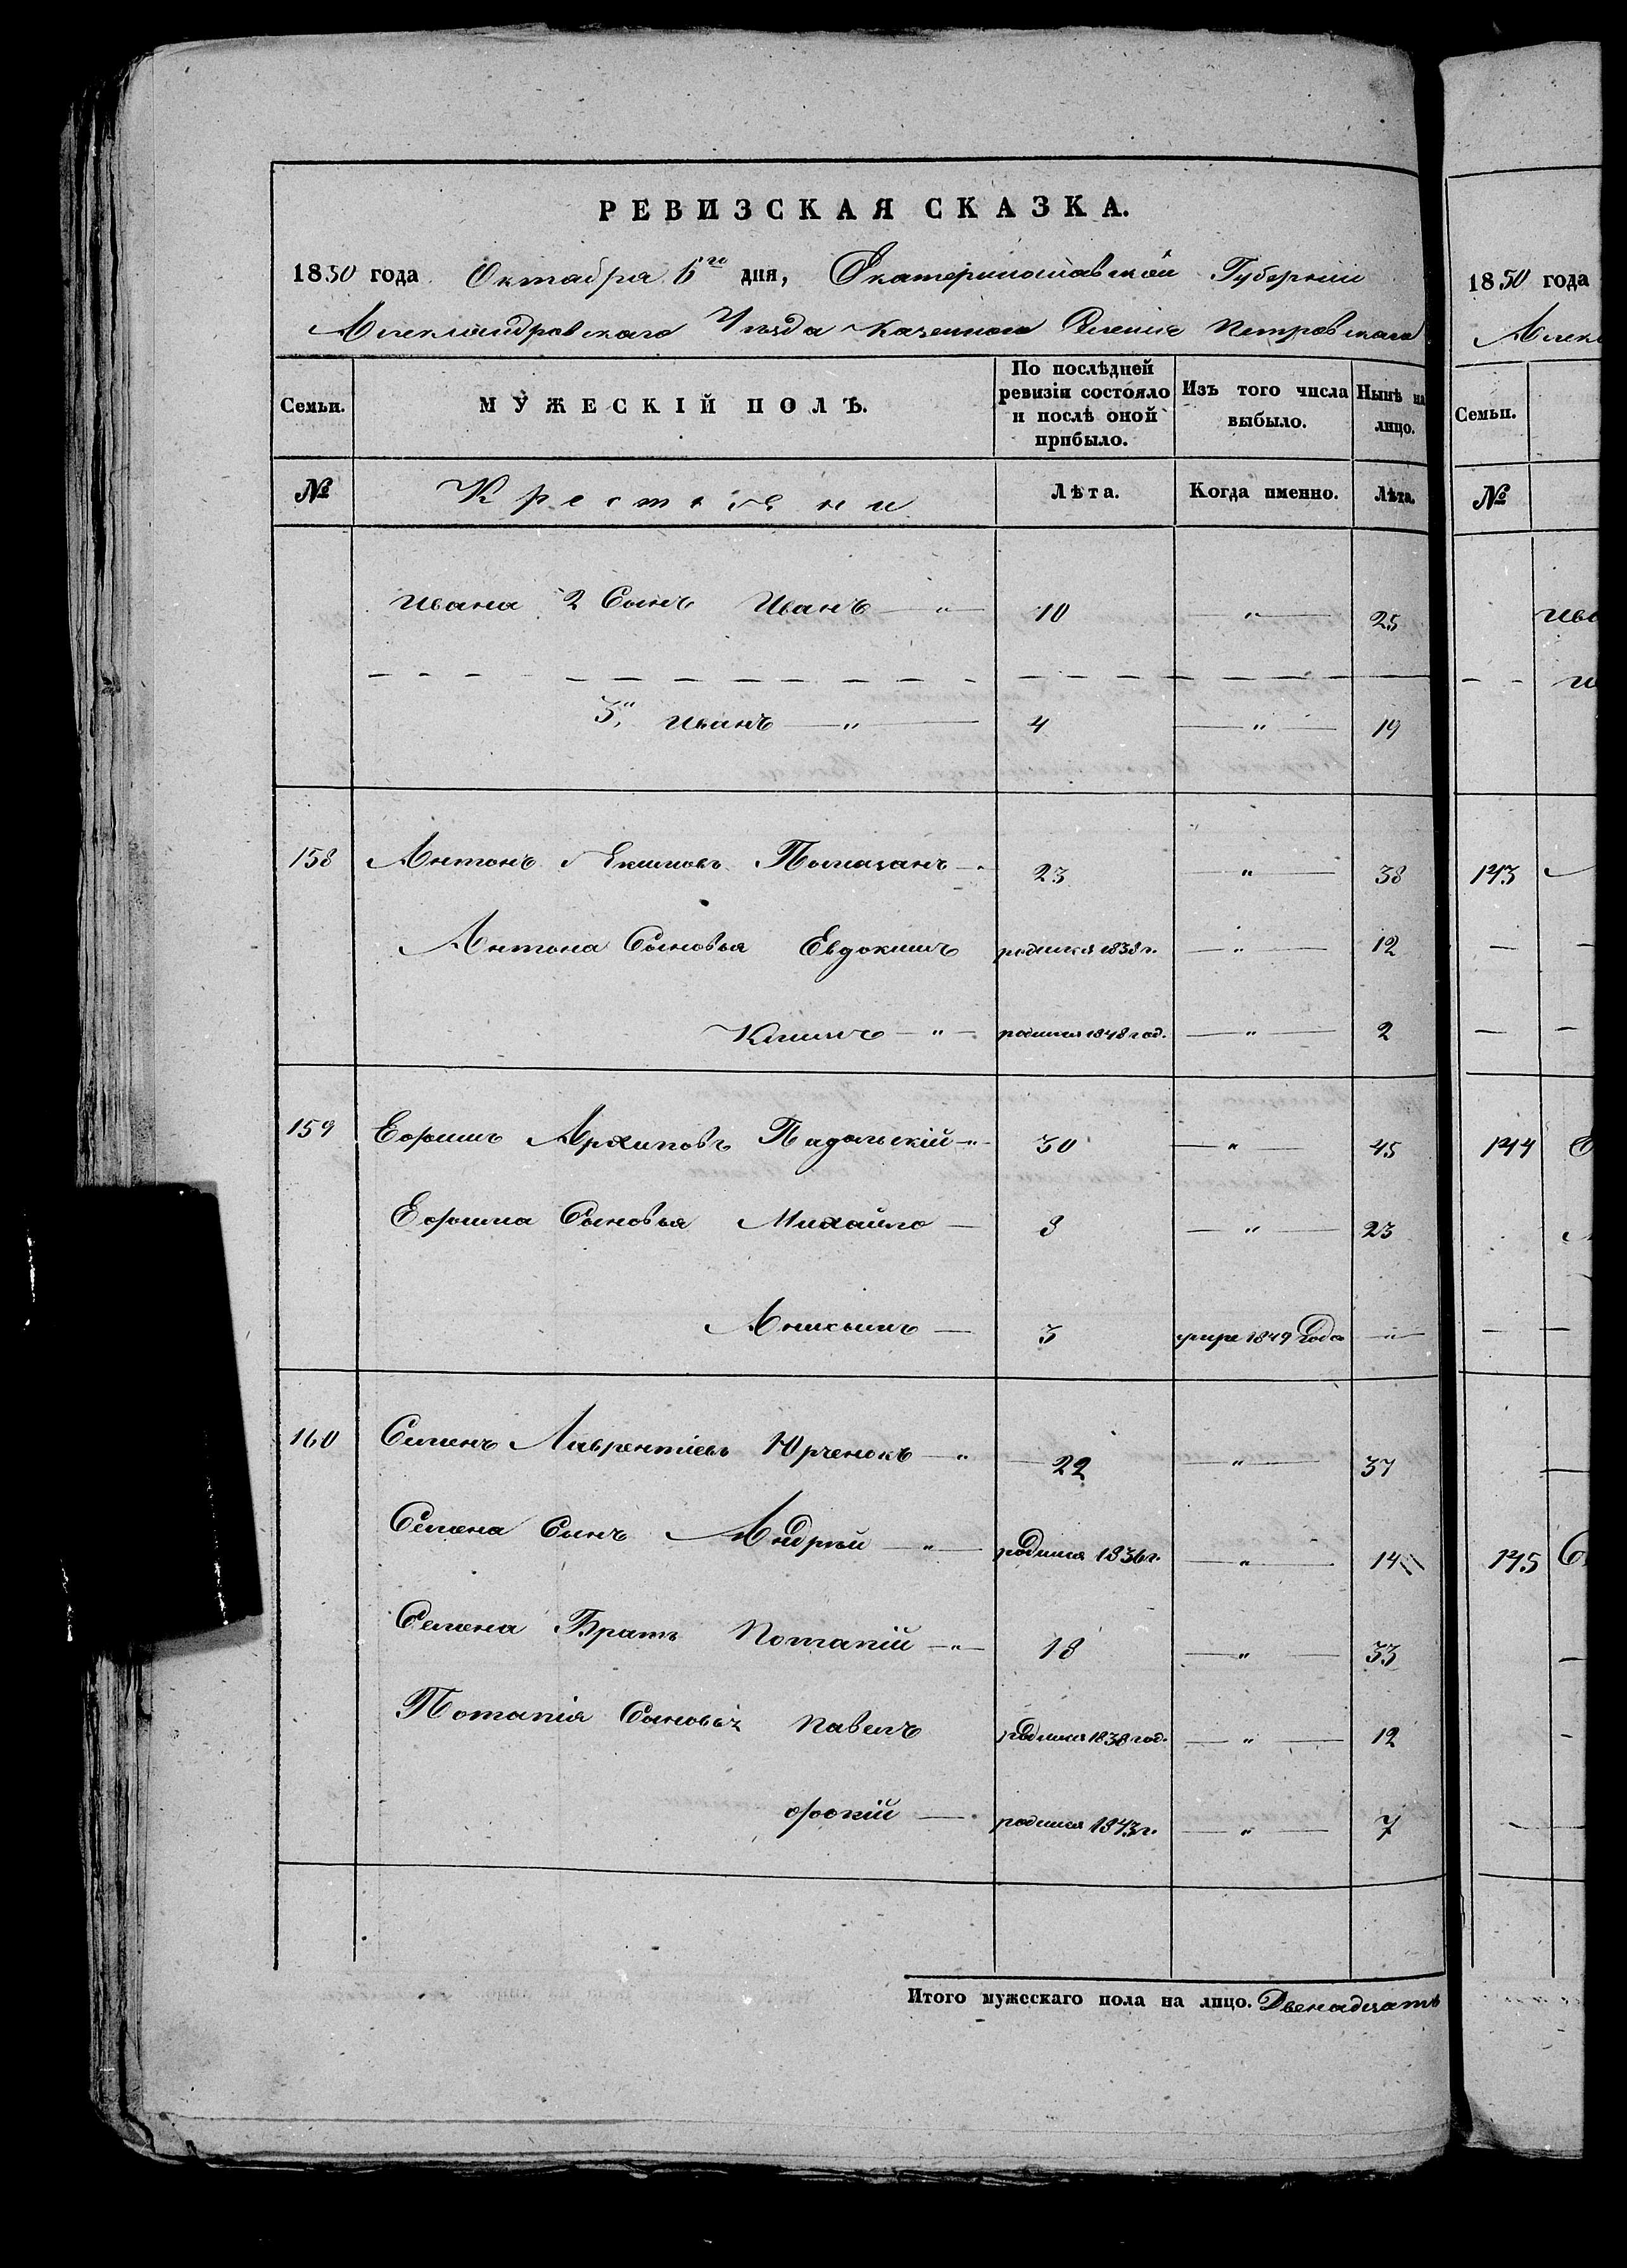 РЕВИЗСКАЯ СКАЗКА.
1850 года Октября 6го дня, Екатеринославской Губернии
Александровскаго Уезда казеннаго Селения Петровскаго
Семьи. МУЖЕСКІЙ ПОЛЪ. По послѣдней ревизіи состояло и послѣ оной прибыло. Изъ того числа выбыло. Нынѣ на лицо.
№ Крестьяни Лѣта. Когда именно. Лѣта.
Ивана 2 Сынъ Иванъ — " — 10 — " — 25
3" Иванъ — " — 4 — " — 19
158 Антонъ Якимовъ Помазанъ — 23 — " — 38
Антона Сыновья Евдокимъ родился 1838 г. — " — 12
Климъ — " — родился 1848 год. — " — 2
159 Ефимъ Архиповъ Падольскій — " 30 — " — 45
Ефима Сыновья Михайло — 8 — " — 23
Анисымъ — 3 умре 1849 Года — " —
160 Семенъ Лаврентіевъ Юрченокъ — " 22 — " — 37
Семена Сынъ Андрѣй — " — родился 1836 г. — " — 14
Семена Братъ Потапій — " — 18 — " — 33
Потапія Сыновья Павелъ родился 1838 год. — " — 12
фокій — родился 1843 г. — " — 7
Итого мужескаго пола на лицо. Двенадцать
1850 года
Алек
Семьи.
№
Ива
143
144
145